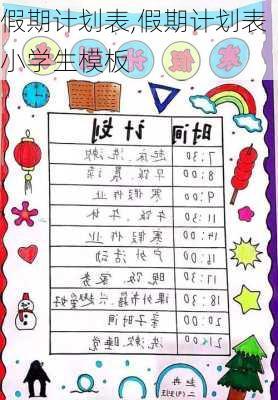 假期计划表,假期计划表
小学生模板
时间 计划
7:30 起床、洗漱
8:00 早饭、晨读
9:00 寒假作业
11:30 午饭、午休
14:00 寒假作业
16:00 户外活动
17:30 晚饭、家务
18:30 课外书籍、兴趣爱好
20:00 亲子时间
21:00 洗漱睡觉